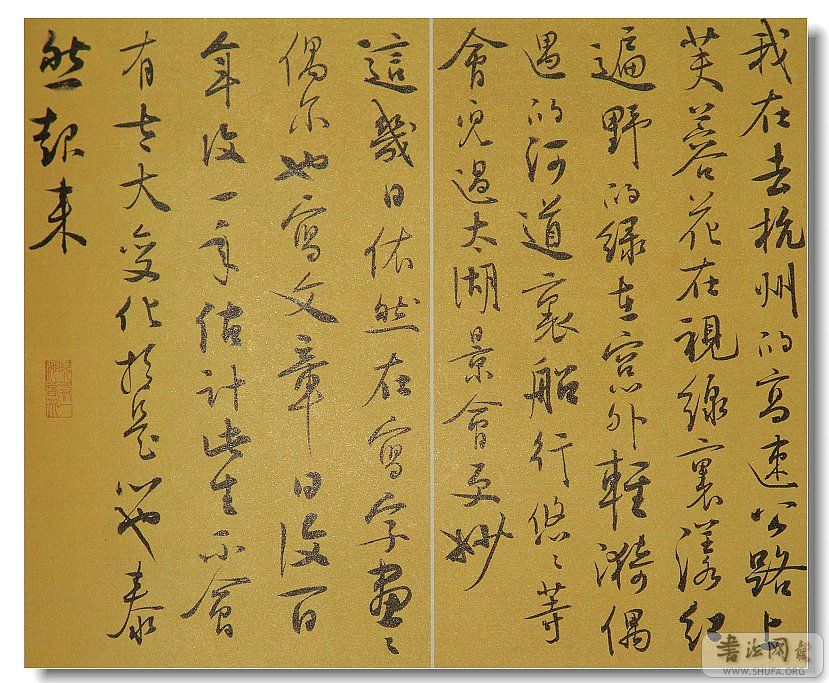 我在去杭州的高速公路上
芙蓉花在視線裏漾紅
遍野的綠在窓外輕漪偶
遇的河道裏船行悠々等
會兒過太湖景會更妙
這幾日依然在寫字畫々
偶尔也寫文章日復一日
年復一年估計此生不會
有太大變化於是心也泰
然起来
書法网
WWW.SHUFA.ORG